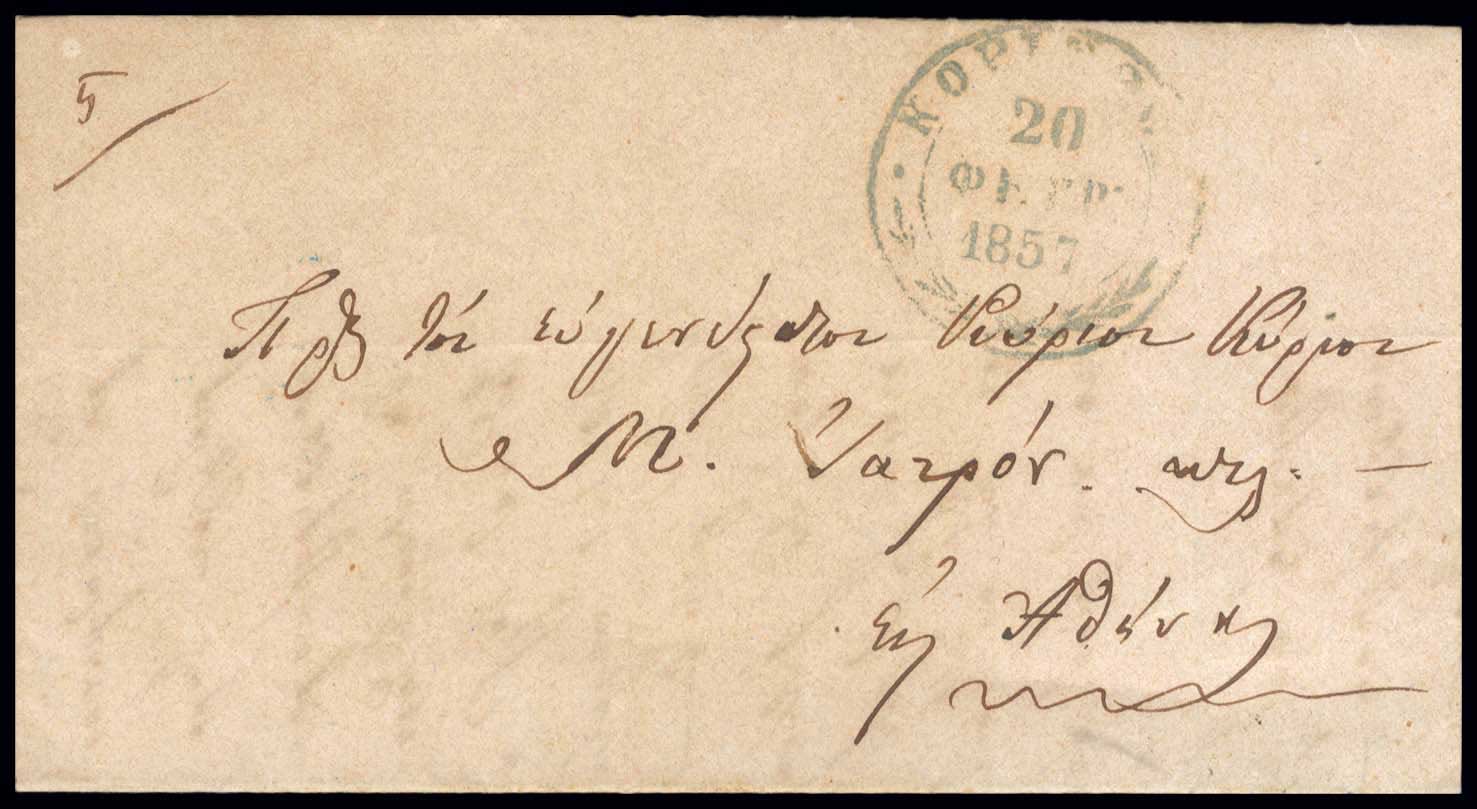 5
ΚΟΡΙΝΘΟΣ
20
ΦΕΒΡ.
1857
Πρὸς τὸν εὐγενέστατον Κύριον Κύριον
Μ. Ἰατρόν. κτλ. —
εἰς Ἀθήνας